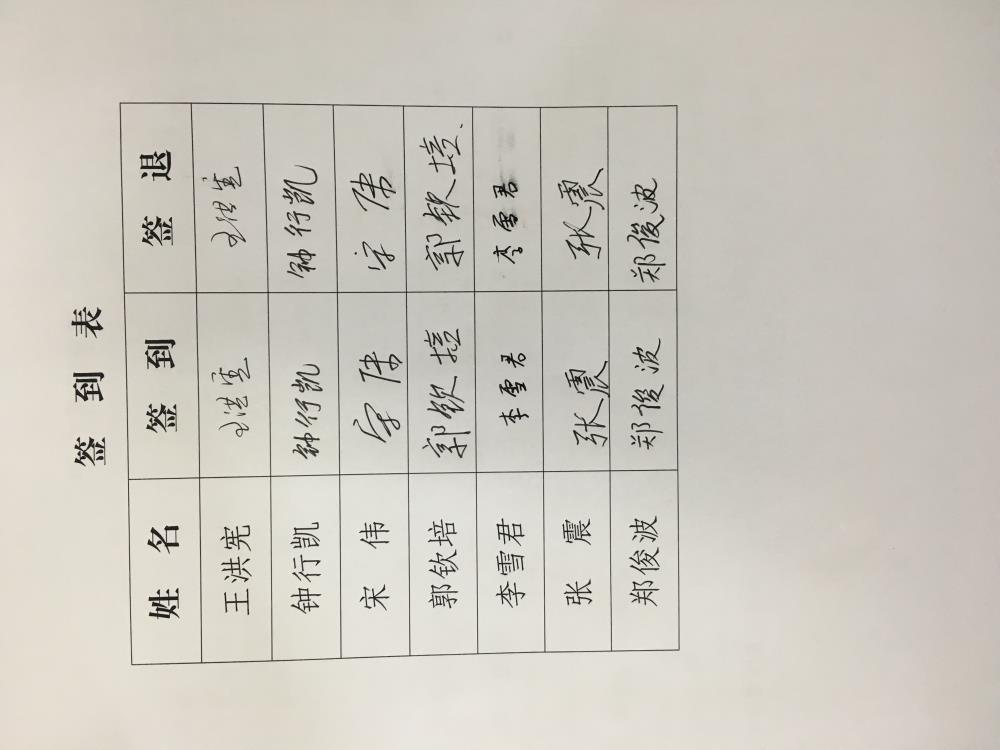 签 到 表
姓 名 签 到 签 退
王洪宪 王洪宪 王洪宪
钟行凯 钟行凯 钟行凯
宋 伟 宋伟 宋伟
郭钦培 郭钦培 郭钦培
李雪君 李雪君 李雪君
张 震 张震 张震
郑俊波 郑俊波 郑俊波